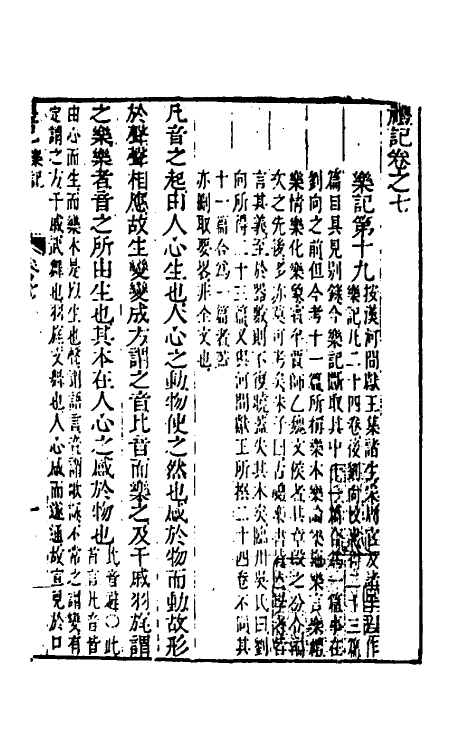 禮記卷之七
樂記第十九
按漢河間獻王集諸生采周官及諸子作
樂記凡二十四卷後劉向校書得二十三篇
篇目具見別錄今樂記斷取其中十一篇合為一篇事在
劉向之前但今考十一篇所稱樂本樂論樂施樂言樂禮
樂情樂化樂象賓牟賈師乙魏文侯者其章段之分合篇
次之先後多亦莫可考矣朱子曰古
言其義至於器數則不復曉蓋失其本矣臨川吳氏曰劉
向所得二十三篇又與河間獻王所撰二十四卷不同其
十一篇合為一篇者蓋
亦刪取要畧非全文也
凡音之起由人心生也人心之動物使之然也感於物而動故形
於聲聲相應故生變變成方謂之音比音而樂之及干戚羽旄謂
之樂樂者音之所由生也其本在人心之感於物也
比音避○此
首言此音皆
由心而生而樂本是以生也聲謂語言音謂歌詠不常之謂變有
定謂之方干戚武舞也羽旄文舞也人心感而遂通故宣見於口
樂記
卷七
一